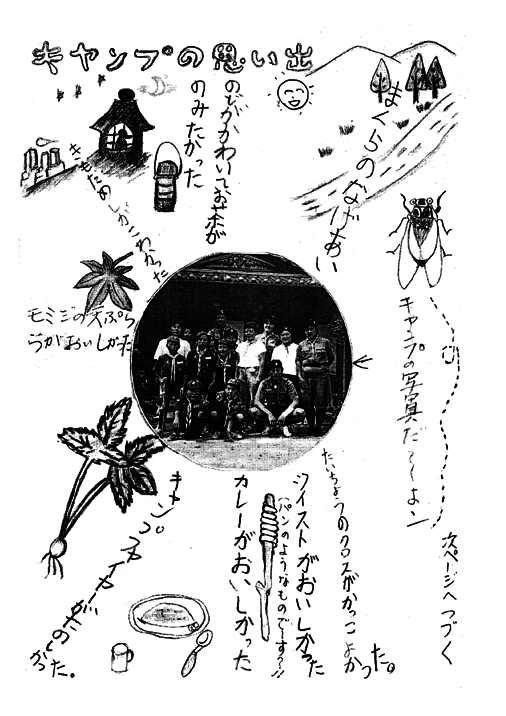 キャンプの思い出
まくらのなげあい
のどがかわいてお茶が
のみたかった
きもだめしがこわかった
モミジの天ぷら
がおいしかた
キャンプの写真だ~よーン
たいちょうのクロスがかっこよかった。
ツイストがおいしかった
(パンのようなものでーす?!!)
カレーがおいしかった
キャンプファイヤーがたのしかった。
次ページへつづく